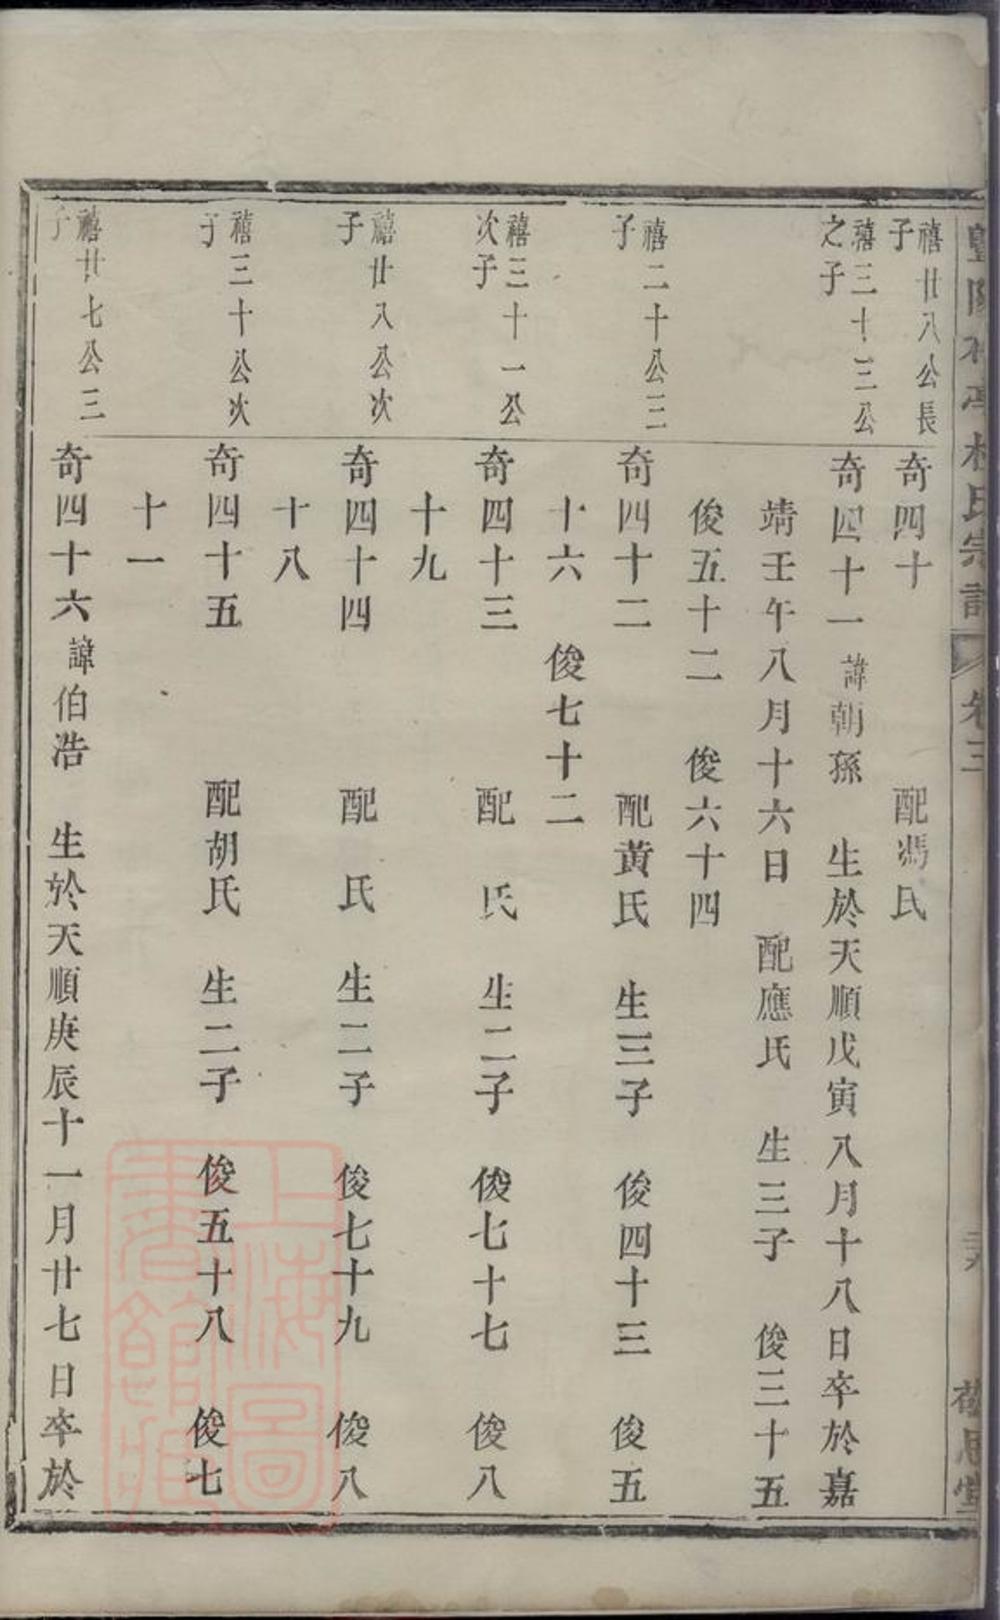 禧廿八公長
子
奇四十 配馮氏
禧三十三公
之子
奇四十一 諱朝孫 生於天順戊寅八月十八日卒於嘉
靖壬午八月十六日 配應氏 生三子 俊三十五
俊五十二 俊六十四
禧二十公三
子
奇四十二 配黃氏 生三子 俊四十三 俊五
十六 俊七十二
禧三十一公
次子
奇四十三 配 氏 生二子 俊七十七 俊八
十九
禧廿八公次
子
奇四十四 配 氏 生二子 俊七十九 俊八
十八
禧三十公次
子
奇四十五 配胡氏 生二子 俊五十八 俊七
十一
禧廿七公三
子
奇四十六 諱伯浩 生於天順庚辰十一月廿七日卒於
氏宗譜 卷三
思堂
上海圖
書館藏